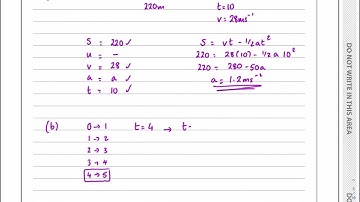 220m t=10
v = 28ms⁻¹
S = 220 ✓ S = vt - ½at²
u = - 220 = 28(10) - ½a 10²
v = 28 ✓ 220 = 280 - 50a
a = a ✓ a = 1.2 ms⁻²
t = 10 ✓
(b) 0 → 1 t = 4 → t -
1 → 2
2 → 3
3 → 4
4 → 5
DO NOT WRITE IN THIS AREA